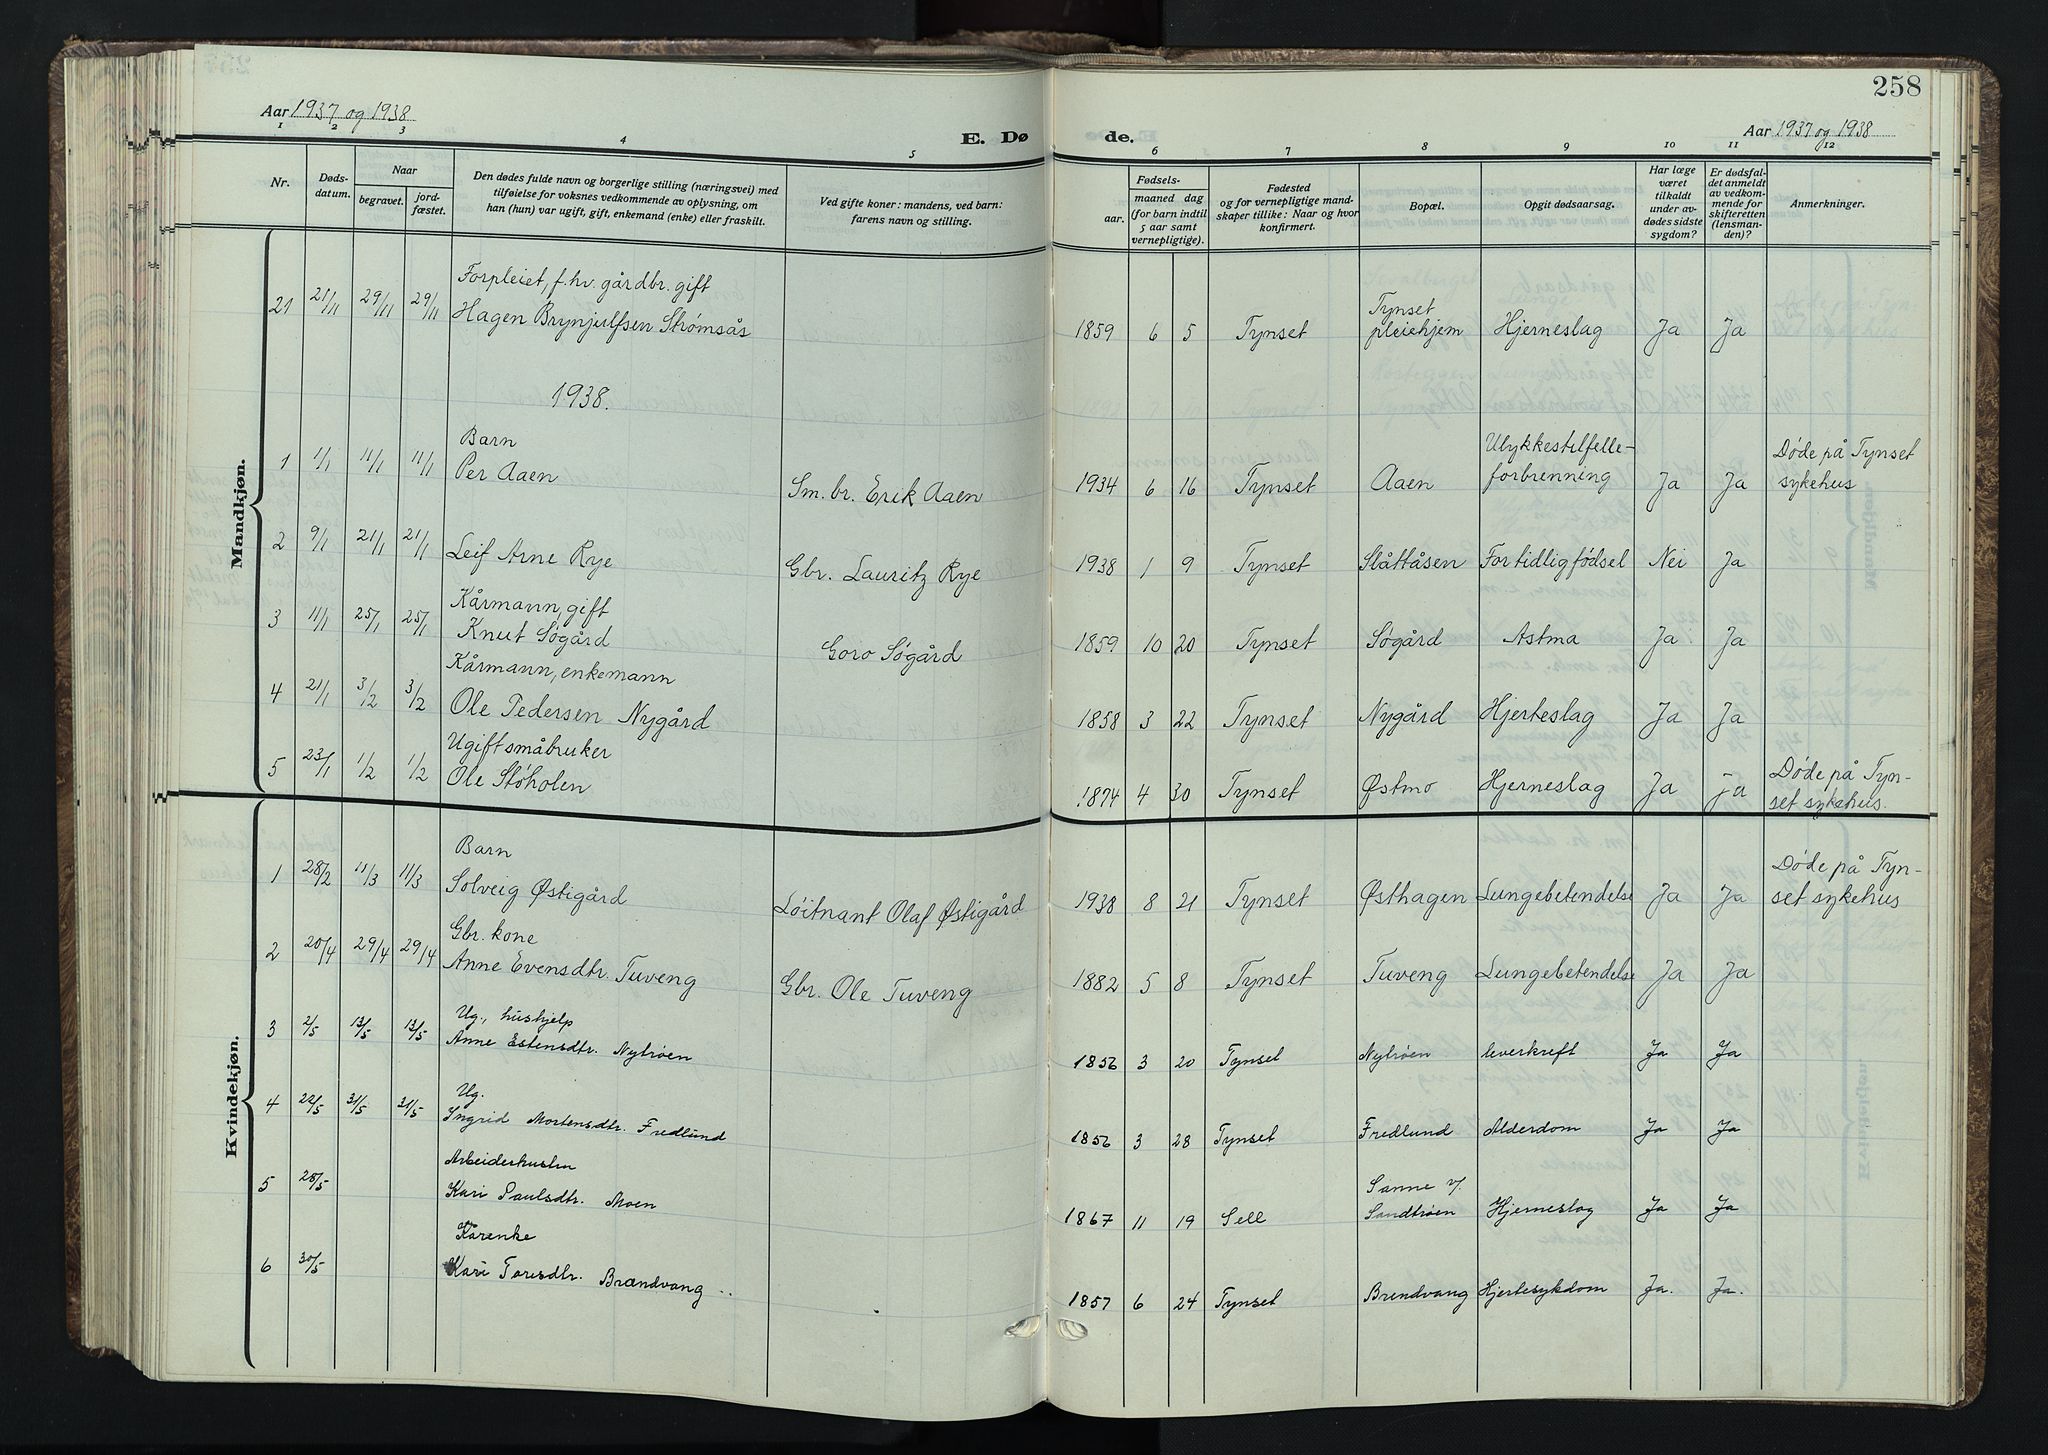 258
Aar 1937 og 1938
E. Dø de.
Aar 1937 og 1938
1 2 3 4 5 6 7 8 9 10 11 12
Nr.
Døds-
datum.
Naar
begravet.
jord-
fæstet.
Den dødes fulde navn og borgerlige stilling (næringsvei) med
tilføielse for voksnes vedkommende av oplysning, om
han (hun) var ugift, gift, enkemand (enke) eller fraskilt.
Ved gifte koner: mandens, ved barn:
farens navn og stilling.
Fødsels-
aar.
maaned dag
(for barn indtil
5 aar samt
vernepligtige).
Fødested
og for vernepligtige mand-
skaper tillike: Naar og hvor
konfirmert.
Bopæl.
Opgit dødsaarsag.
Har læge
været
tilkaldt
under av-
dødes sidste
sygdom?
Er dødsfal-
det anmeldt
av vedkom-
mende for
skifteretten
(lensman-
den)?
Anmerkninger.
Mandkjøn.
Forpleiet, f. hv. gårdbr. gift
21 21/11 29/11 29/11 Hagen Brynjulfsen Strømsås 1859 6 5 Tynset Tynset pleiehjem Hjerneslag Ja Ja
1938.
Barn
1 1/1 11/1 11/1 Per Aaen Sm. br. Erik Aaen 1934 6 16 Tynset Aaen Ulykkestilfelle- forbrenning Ja Ja Døde på Tynset sykehus
2 9/1 21/1 21/1 Leif Arne Rye Gbr. Lauritz Rye 1938 1 9 Tynset Slåttåsen For tidlig fødsel Nei Ja
Kårmann, gift
3 11/1 25/1 25/1 Knut Søgård Goro Søgård 1859 10 20 Tynset Søgård Astma Ja Ja
Kårmann, enkemann
4 21/1 3/2 3/2 Ole Pedersen Nygård 1858 3 22 Tynset Nygård Hjerteslag Ja Ja
Ugift småbruker
5 23/1 1/2 1/2 Ole Støholen 1874 4 30 Tynset Østmo Hjerneslag Ja ja Døde på Tyn- set sykehus.
Kvindekjøn.
Barn
1 28/2 11/3 11/3 Solveig Østigård Løitnant Olaf Østigård 1938 8 21 Tynset Østhagen Lungebetendelse Ja Ja Døde på Tyn- set sykehus
Gbr. kone
2 20/4 29/4 29/4 Anne Evensdtr. Tuveng Gbr. Ole Tuveng 1882 5 8 Tynset Tuveng Lungebetendelse Ja Ja
Ug., hushjelp
3 2/5 13/5 13/5 Anne Estensdtr. Nytrøen 1856 3 20 Tynset Nytrøen leverkreft Ja Ja
Ug.
4 22/5 31/5 31/5 Ingrid Mortensdtr. Fredlund 1856 3 28 Tynset Fredlund Alderdom Ja Ja
Arbeiderhustru
5 28/5 Kari Paulsdtr. Moen 1867 11 19 Sell Sanne v/. Sandtrøen Hjerneslag Ja Ja
Kårenke
6 30/5 Kari Toresdtr. Brandvang 1857 6 24 Tynset Brendvang Hjertesykdom Ja. Ja.